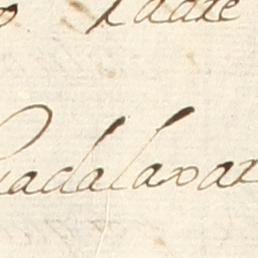 Padre
Guadalaxar